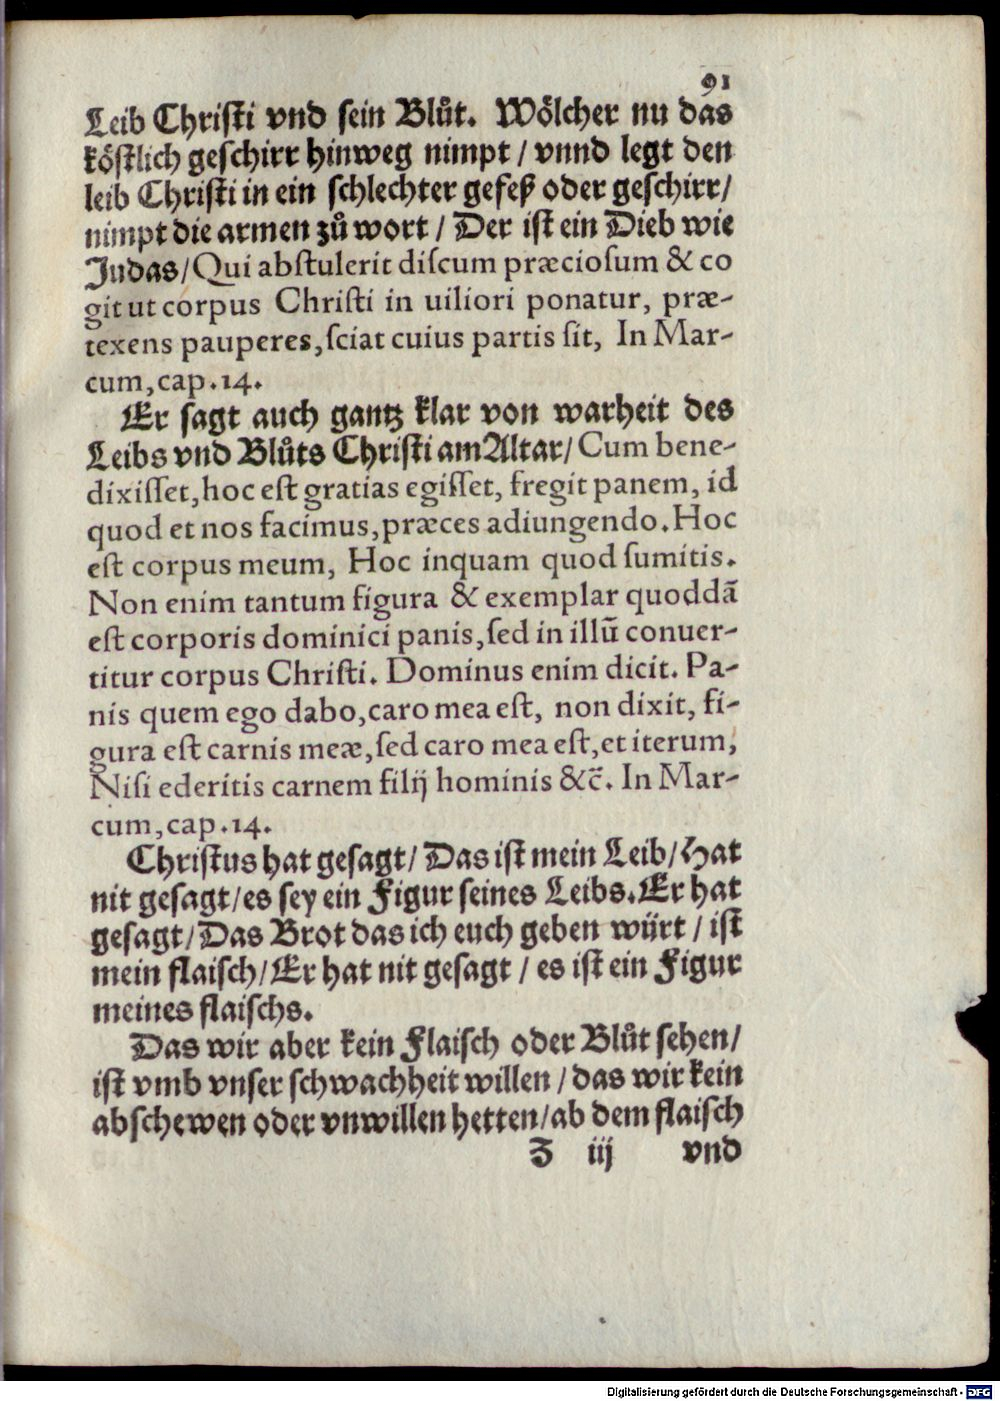 91
Leib Chriſti vnd ſein Blůt. Wölcher nu das
köſtlich geſchirr hinweg nimpt / vnnd legt den
leib Chriſti in ein ſchlechter gefeß oder geſchirr/
nimpt die armen zů wort / Der iſt ein Dieb wie
Judas/Qui abſtulerit diſcum præcioſum & co
git ut corpus Chriſti in uiliori ponatur, præ-
texens pauperes,ſciat cuius partis ſit, In Mar-
cum,cap.14.
Er ſagt auch gantz klar von warheit des
Leibs vnd Blůts Chriſti am Altar/Cum bene-
dixiſſet,hoc eſt gratias egiſſet, fregit panem, id
quod et nos facimus,præces adiungendo.Hoc
eſt corpus meum, Hoc inquam quod ſumitis.
Non enim tantum figura & exemplar quoddã
eſt corporis dominici panis,ſed in illũ conuer-
titur corpus Chriſti. Dominus enim dicit. Pa-
nis quem ego dabo,caro mea eſt, non dixit, fi-
gura eſt carnis meæ,ſed caro mea eſt,et iterum,
Niſi ederitis carnem filij hominis &c̃. In Mar-
cum,cap.14.
Chriſtus hat geſagt/ Das iſt mein Leib/Hat
nit geſagt/es ſey ein Figur ſeines Leibs.Er hat
geſagt/Das Brot das ich euch geben würt / iſt
mein flaiſch/Er hat nit geſagt / es iſt ein Figur
meines flaiſchs.
Das wir aber kein Flaiſch oder Blůt ſehen/
iſt vmb vnſer ſchwachheit willen / das wir kein
abſchewen oder vnwillen hetten/ab dem flaiſch
Z iij vnd
Digitalisierung gefördert durch die Deutsche Forschungsgemeinschaft - DFG